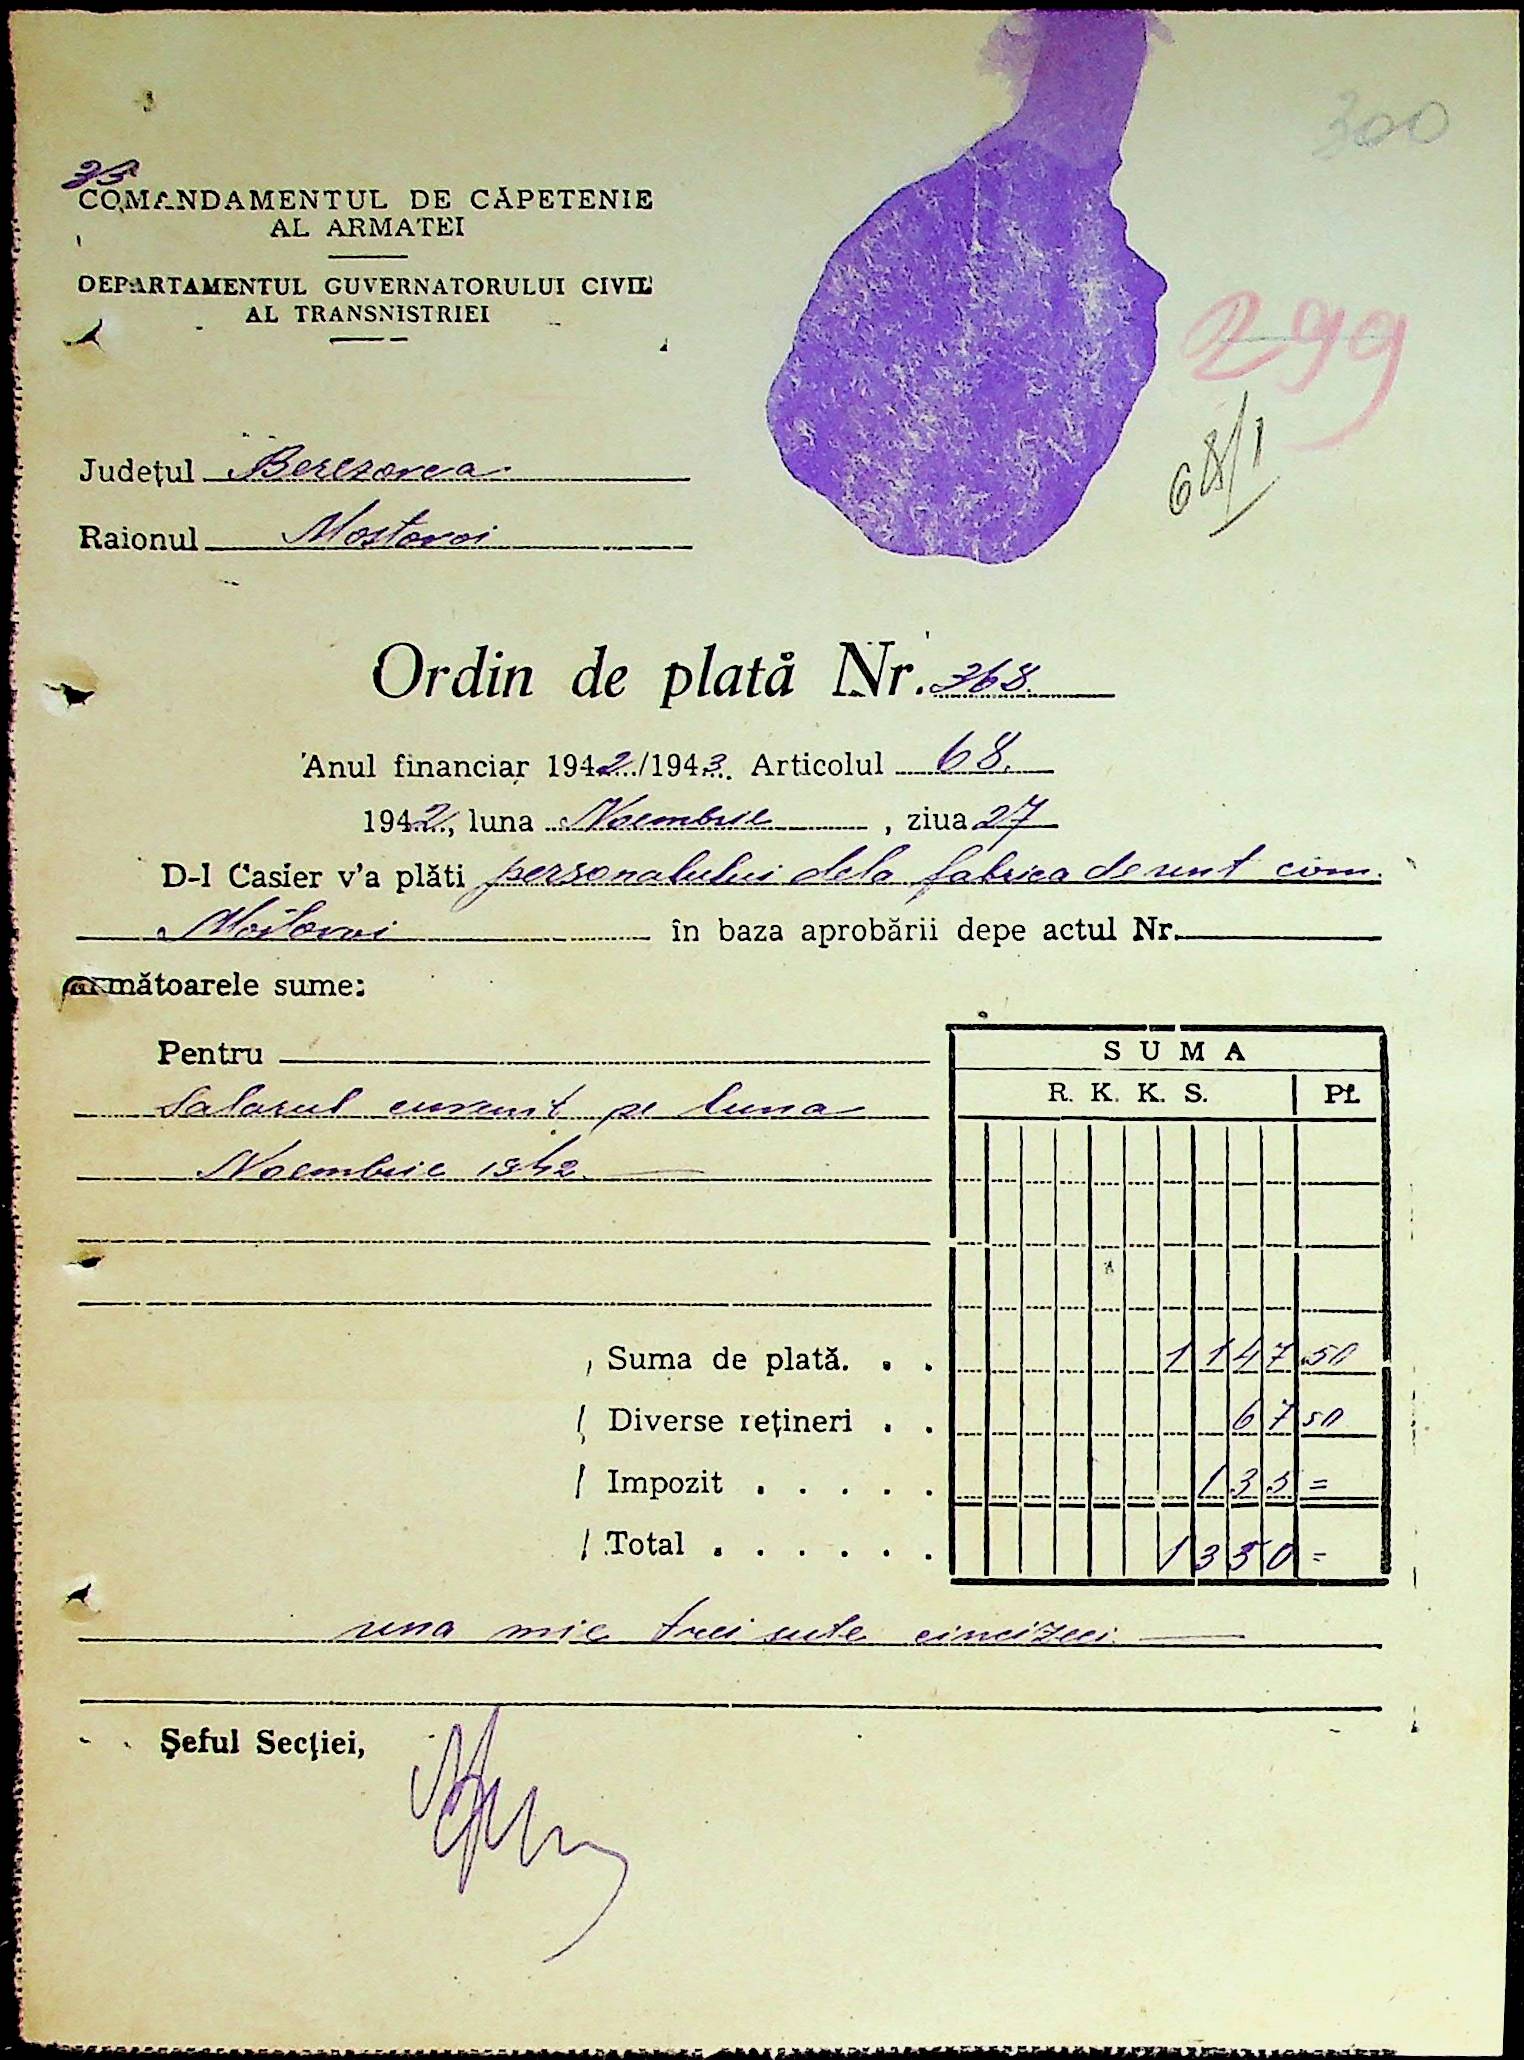 300
35
COMANDAMENTUL DE CĂPETENIE
AL ARMATEI
DEPARTAMENTUL GUVERNATORULUI CIVIL
AL TRANSNISTRIEI
299
68/1
Județul Beresovca
Raionul Mostovoi
Ordin de plată Nr. 368.
Anul financiar 1942/1943. Articolul 68.
1942, luna Noembrie, ziua 27
D-l Casier v'a plăti personalului dela fabrica de unt com.
Mostovoi în baza aprobării depe actul Nr.
următoarele sume:
Pentru
Salarul curent pe luna
Noembrie 1942
SUMA
R. K. K. S. Pf.
Suma de plată. . . 1147.50
Diverse rețineri . . 67 50
Impozit . . . . . 135 =
Total . . . . . . 1350 =
una mie trei sute cincizeci
Șeful Secției,